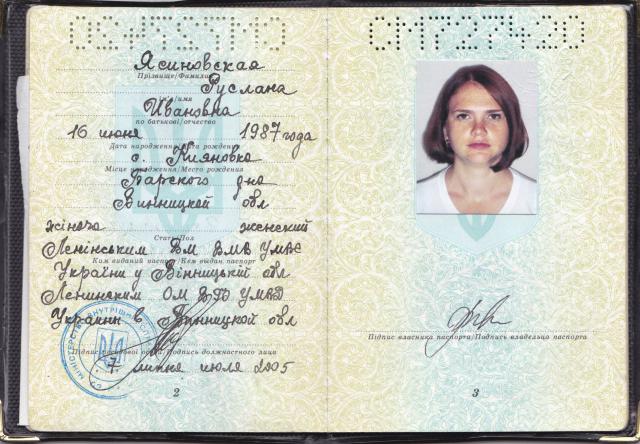 Ясиновская
Прізвище/Фамилия
Руслана
Ім'я/имя
Ивановна
по батькові/отчество
16 июня 1987 года
Дата народження/Дата рождения
с. Кияновка
Місце народження/Место рождения
Барского р-на
Винницкой обл
жіноча женский
Стать/Пол
Ленінським ВМ ВМВ УМВС
Ким виданий паспорт/Кем выдан паспорт
України у Вінницькій обл
Ленинским ОМ УМВД
Украины в Винницкой обл
МІНІСТЕРСТВО ВНУТРІШНІХ
Підпис посадової особи/Подпись должностного лица
7 липня июля 2005
2
СМ727420
Підпис власника паспорта/Подпись владельца паспорта
3